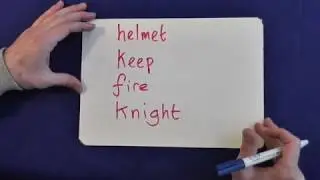 helmet
Keep
fire
Knight